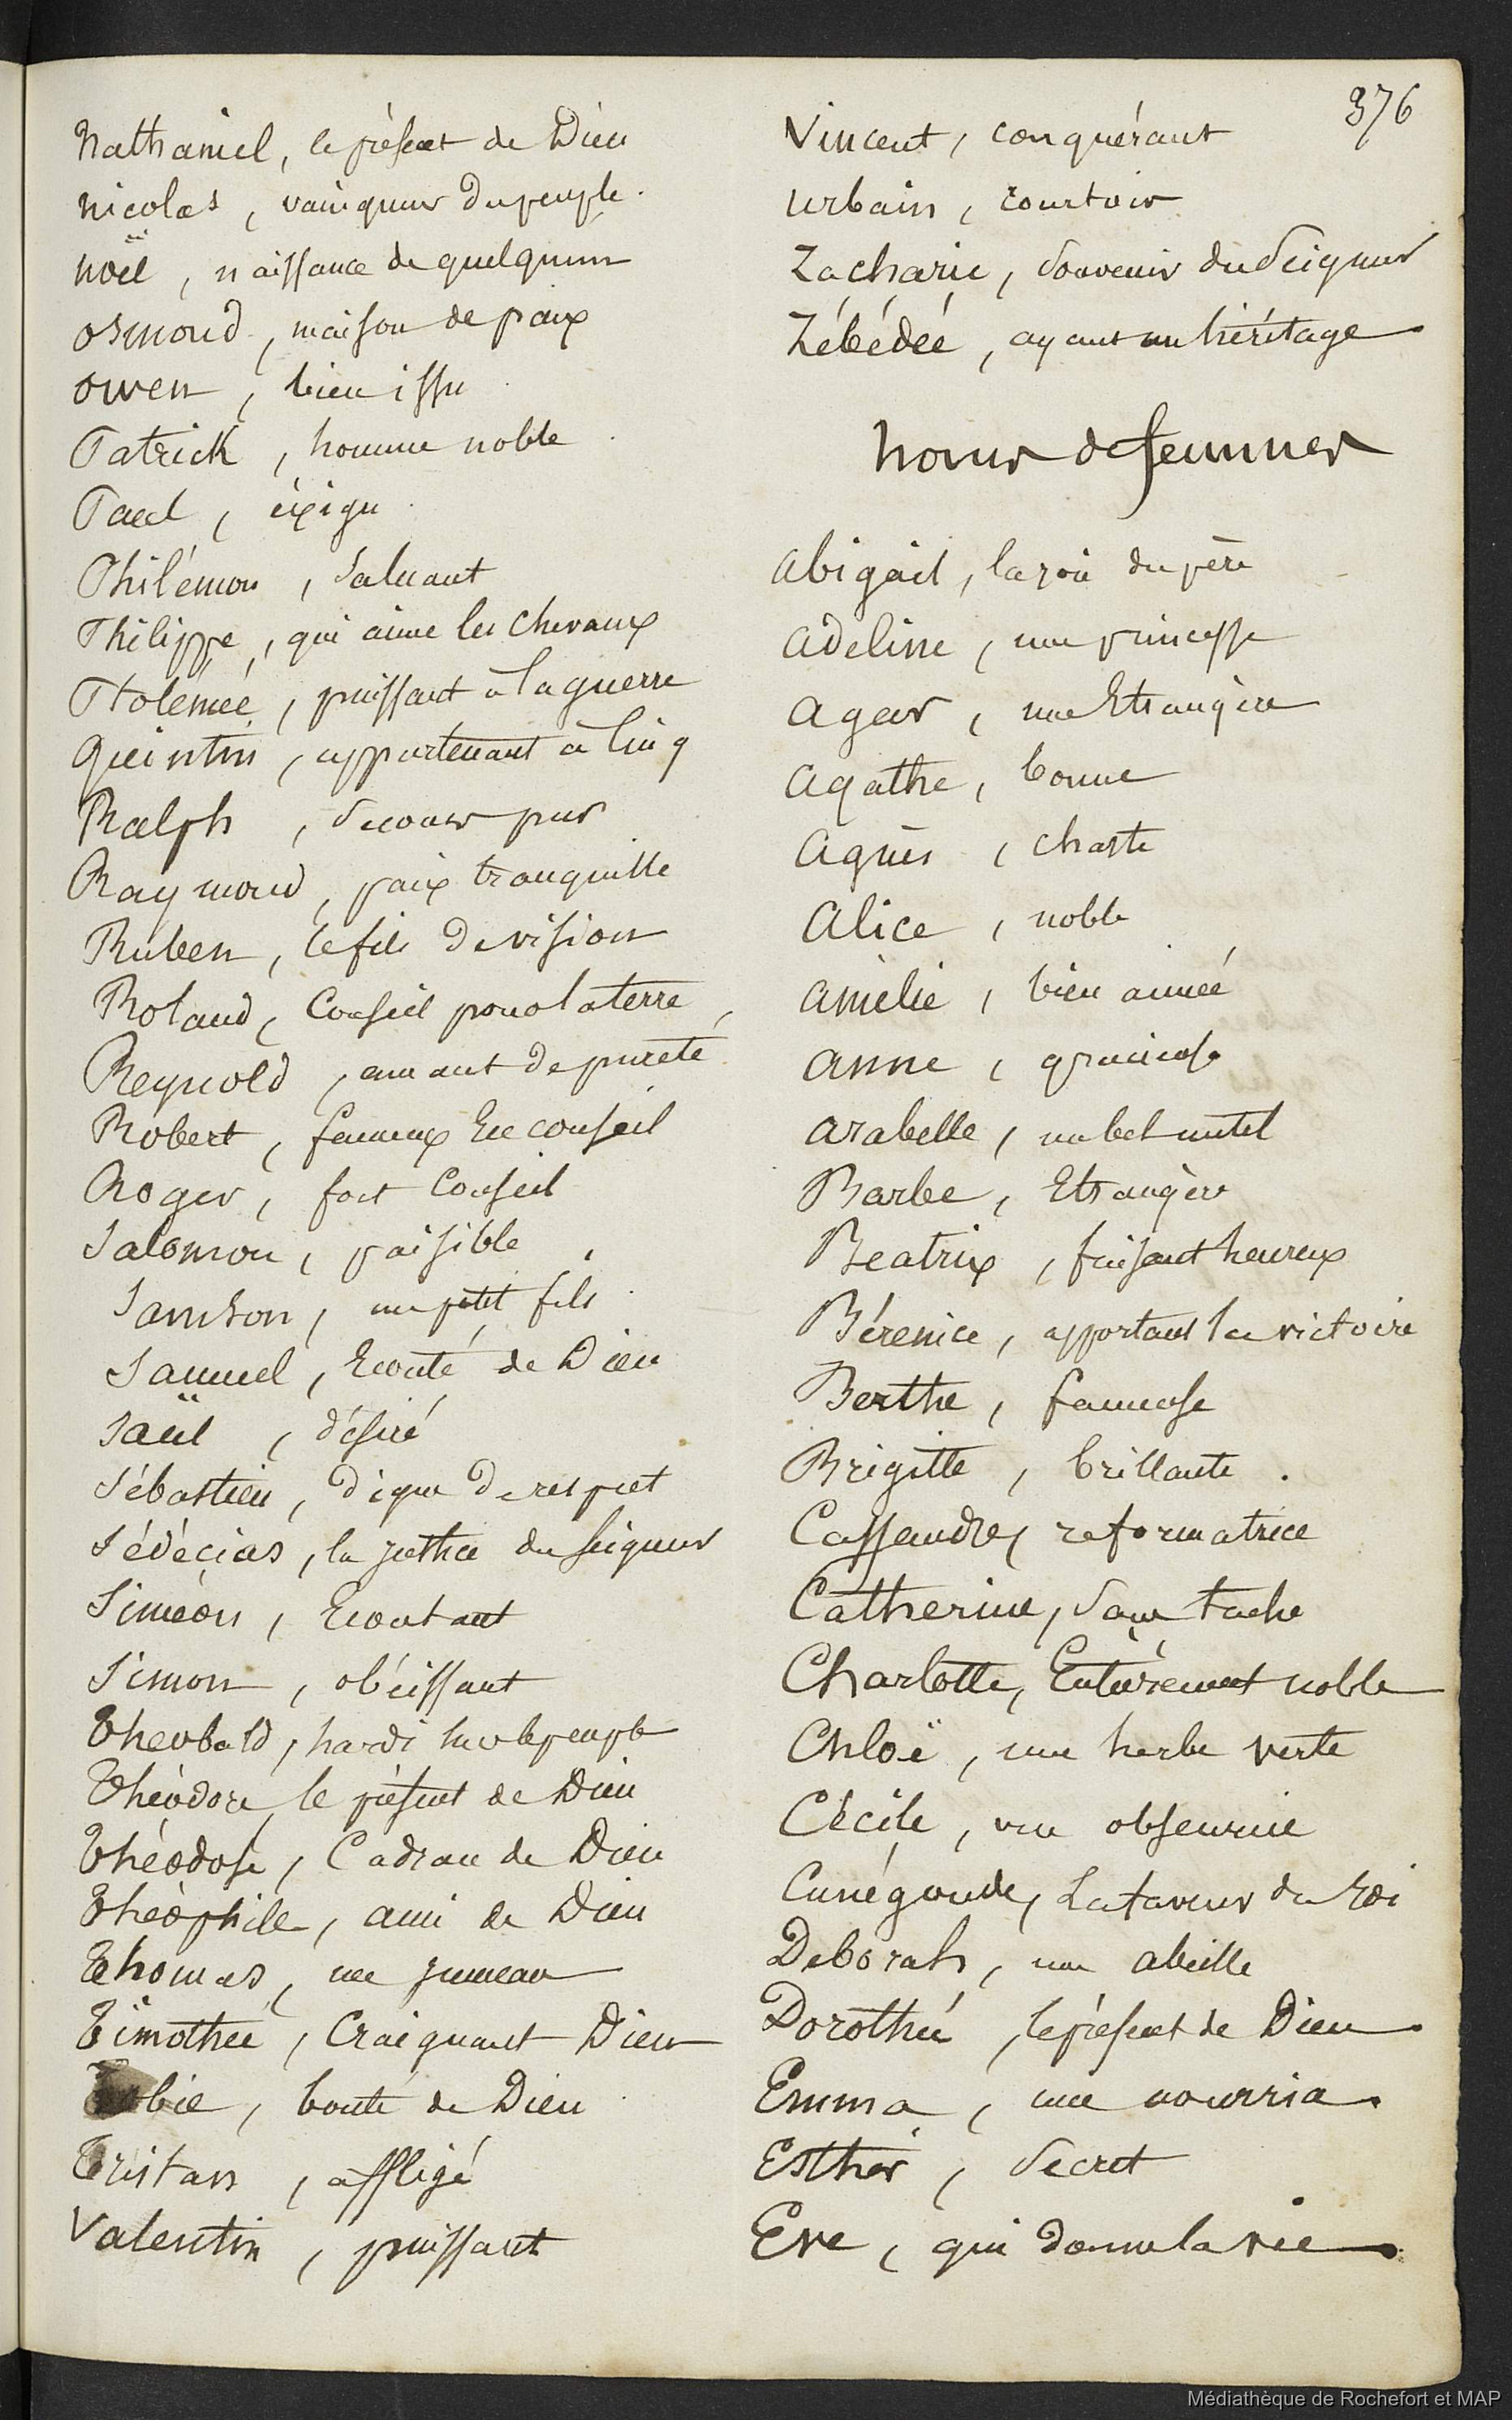 376
Nathaniel, le présent de Dieu
Nicolas, vainqueur du peuple.
Noël, naissance de quelqu'un
Osmond, maison de paix
Owen, bien issu
Patrick, homme noble
Paul, exigu
Philémon, saluant
Philippe, qui aime les chevaux
Ptolémée, puissant à la guerre
Quintin, appartenant à Cinq
Ralph, secours pur
Raymond, paix tranquille
Ruben, le fils de vision
Roland, Conseil pour la terre
Reynold, amant de pureté
Robert, fameux En conseil
Roger, fort Conseil
Salomon, paisible
Samson, un petit fils
Samuel, Ecouté de Dieu
Saül, désiré
Sébastien, digne de respect
Sédécias, la justice du Seigneur
Siméon, Ecoutant
Simon, obéissant
Theobald, hardi sur le peuple
Théodore, le présent de Dieu
Théodose, Cadeau de Dieu
Théophile, ami de Dieu
Thomas, un jumeau
Timothée, Craignant Dieu
Tobie, bonté de Dieu
Tristan, affligé
Valentin, puissant
Vincent, conquérant
Urbain, courtois
Zacharie, Souvenir du Seigneur
Zébédéé, ayant un héritage
Noms de femmes
Abigail, la joie du père
Adeline, une princesse
Agar, une Etrangère
Agathe, bonne
Agnès, chaste
Alice, noble
Amélie, bien aimée
Anne, gracieuse
Arabelle, un bel autel
Barbe, Etrangère
Beatrix, faisant heureux
Bérenice, apportant la victoire
Berthe, fameuse
Brigitte, brillante.
Cassandre, reformatrice
Catherine, sans tache
Charlotte, Entièrement noble
Chloë, une herbe verte
Cécile, vue obscurcie
Cunégonde, La faveur du Roi
Deborah, une abeille
Dorothée, le présent de Dieu
Emma, une nourrice
Esther, Secret
Eve, qui donne la vie
Médiathèque de Rochefort et MAP